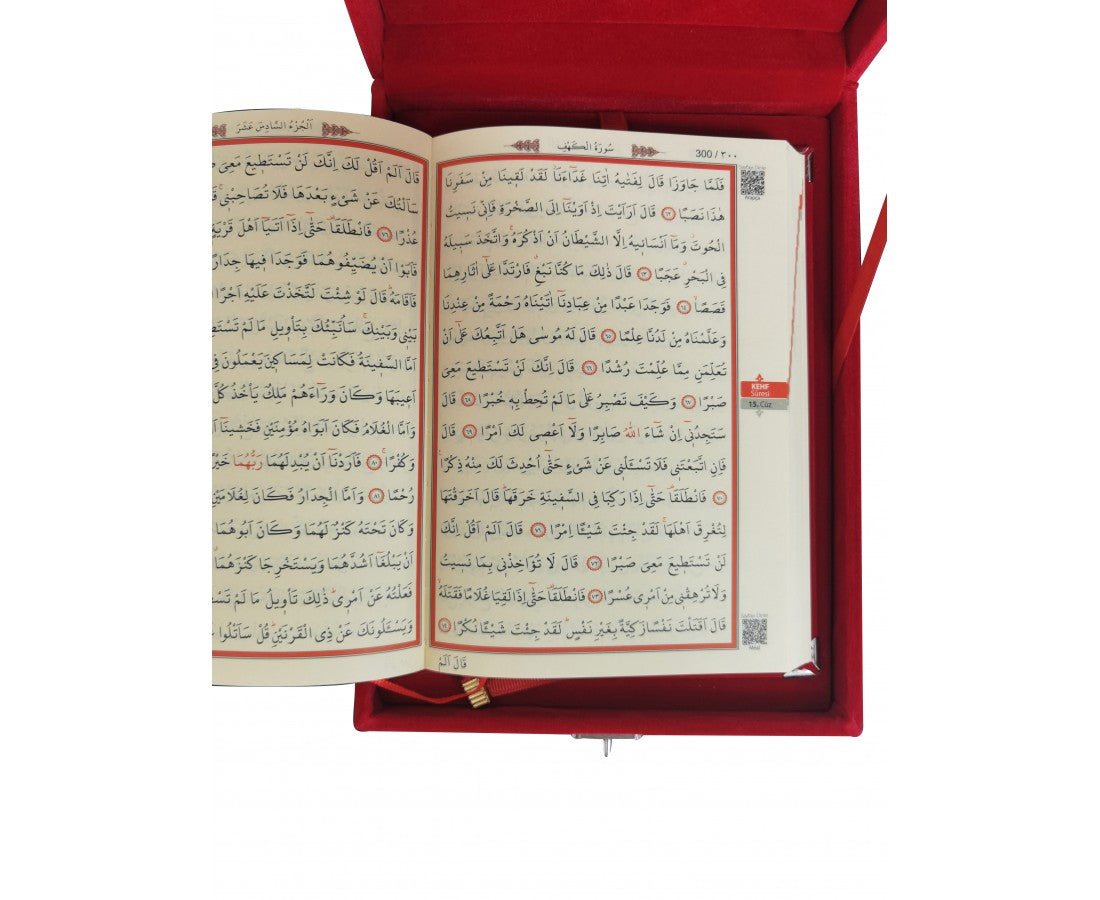 سُورَةُ الْكَهْفِ
300 / ٣٠٠
فَلَمَّا جَاوَزَا قَالَ لِفَتٰيهُ اٰتِنَا غَدَٓاءَنَاۘ لَقَدْ لَق۪ينَا مِنْ سَفَرِنَا
هٰذَا نَصَبًا ﴿٦٢﴾ قَالَ اَرَاَيْتَ اِذْ اَوَيْنَٓا اِلَى الصَّخْرَةِ فَاِنّ۪ي نَس۪يتُ
الْحُوتَۘ وَمَٓا اَنْسَان۪يهُ اِلَّا الشَّيْطَانُ اَنْ اَذْكُرَهُۚ وَاتَّخَذَ سَب۪يلَهُ
فِي الْبَحْرِۗ عَجَبًا ﴿٦٣﴾ قَالَ ذٰلِكَ مَا كُنَّا نَبْغِۗ فَارْتَدَّا عَلٰٓى اٰثَارِهِمَا
قَصَصًاۙ ﴿٦٤﴾ فَوَجَدَا عَبْدًا مِنْ عِبَادِنَٓا اٰتَيْنَاهُ رَحْمَةً مِنْ عِنْدِنَا
وَعَلَّمْنَاهُ مِنْ لَدُنَّا عِلْمًا ﴿٦٥﴾ قَالَ لَهُ مُوسٰى هَلْ اَتَّبِعُكَ عَلٰٓى اَنْ
تُعَلِّمَنِ مِمَّا عُلِّمْتَ رُشْدًا ﴿٦٦﴾ قَالَ اِنَّكَ لَنْ تَسْتَط۪يعَ مَعِيَ
صَبْرًا ﴿٦٧﴾ وَكَيْفَ تَصْبِرُ عَلٰى مَا لَمْ تُحِطْ بِه۪ خُبْرًا ﴿٦٨﴾ قَالَ
سَتَجِدُن۪ٓي اِنْ شَٓاءَ اللّٰهُ صَابِرًا وَلَٓا اَعْص۪ي لَكَ اَمْرًا ﴿٦٩﴾ قَالَ
فَاِنِ اتَّبَعْتَن۪ي فَلَا تَسْـَٔلْن۪ي عَنْ شَيْءٍ حَتّٰٓى اُحْدِثَ لَكَ مِنْهُ ذِكْرًا۟
﴿٧٠﴾ فَانْطَلَقَا۠ حَتّٰٓى اِذَا رَكِبَا فِي السَّف۪ينَةِ خَرَقَهَاۜ قَالَ اَخَرَقْتَهَا
لِتُغْرِقَ اَهْلَهَاۚ لَقَدْ جِئْتَ شَيْـًٔا اِمْرًا ﴿٧١﴾ قَالَ اَلَمْ اَقُلْ اِنَّكَ
لَنْ تَسْتَط۪يعَ مَعِيَ صَبْرًا ﴿٧٢﴾ قَالَ لَا تُؤَاخِذْن۪ي بِمَا نَس۪يتُ
وَلَا تُرْهِقْن۪ي مِنْ اَمْر۪ي عُسْرًا ﴿٧٣﴾ فَانْطَلَقَا۠ حَتّٰٓى اِذَا لَقِيَا غُلَامًا فَقَتَلَهُۙ
قَالَ اَقَتَلْتَ نَفْسًا زَكِيَّةً بِغَيْرِ نَفْسٍۜ لَقَدْ جِئْتَ شَيْـًٔا نُكْرًا ﴿٧٤﴾
قَالَ اَلَمْ
KEHF
Sûresi
15. Cüz
Meal
اَلْجُزْءُ السَّادِسَ عَشَرَ
قَالَ اَلَمْ اَقُلْ لَكَ اِنَّكَ لَنْ تَسْتَط۪يعَ مَعِيَ
سَاَلْتُكَ عَنْ شَيْءٍ بَعْدَهَا فَلَا تُصَاحِبْن۪يۚ
عُذْرًا ﴿٧٦﴾ فَانْطَلَقَا۠ حَتّٰٓى اِذَٓا اَتَيَٓا اَهْلَ قَرْيَةٍ
فَاَبَوْا اَنْ يُضَيِّفُوهُمَا فَوَجَدَا ف۪يهَا جِدَارًا
فَاَقَامَهُۜ قَالَ لَوْ شِئْتَ لَتَّخَذْتَ عَلَيْهِ اَجْرًا
بَيْن۪ي وَبَيْنِكَۚ سَاُنَبِّئُكَ بِتَأْو۪يلِ مَا لَمْ
اَمَّا السَّف۪ينَةُ فَكَانَتْ لِمَسَاك۪ينَ يَعْمَلُونَ فِي
اَع۪يبَهَا وَكَانَ وَرَٓاءَهُمْ مَلِكٌ يَأْخُذُ كُلَّ
وَاَمَّا الْغُلَامُ فَكَانَ اَبَوَاهُ مُؤْمِنَيْنِ فَخَش۪ينَٓا
وَكُفْرًاۚ ﴿٨٠﴾ فَاَرَدْنَٓا اَنْ يُبْدِلَهُمَا رَبُّهُمَا
رُحْمًا ﴿٨١﴾ وَاَمَّا الْجِدَارُ فَكَانَ لِغُلَامَيْنِ
وَكَانَ تَحْتَهُ كَنْزٌ لَهُمَا وَكَانَ اَبُوهُمَا
اَنْ يَبْلُغَٓا اَشُدَّهُمَا وَيَسْتَخْرِجَا كَنْزَهُمَاۗ
فَعَلْتُهُ عَنْ اَمْر۪يۜ ذٰلِكَ تَأْو۪يلُ مَا لَمْ
وَيَسْـَٔلُونَكَ عَنْ ذِي الْقَرْنَيْنِۜ قُلْ سَاَتْلُوا